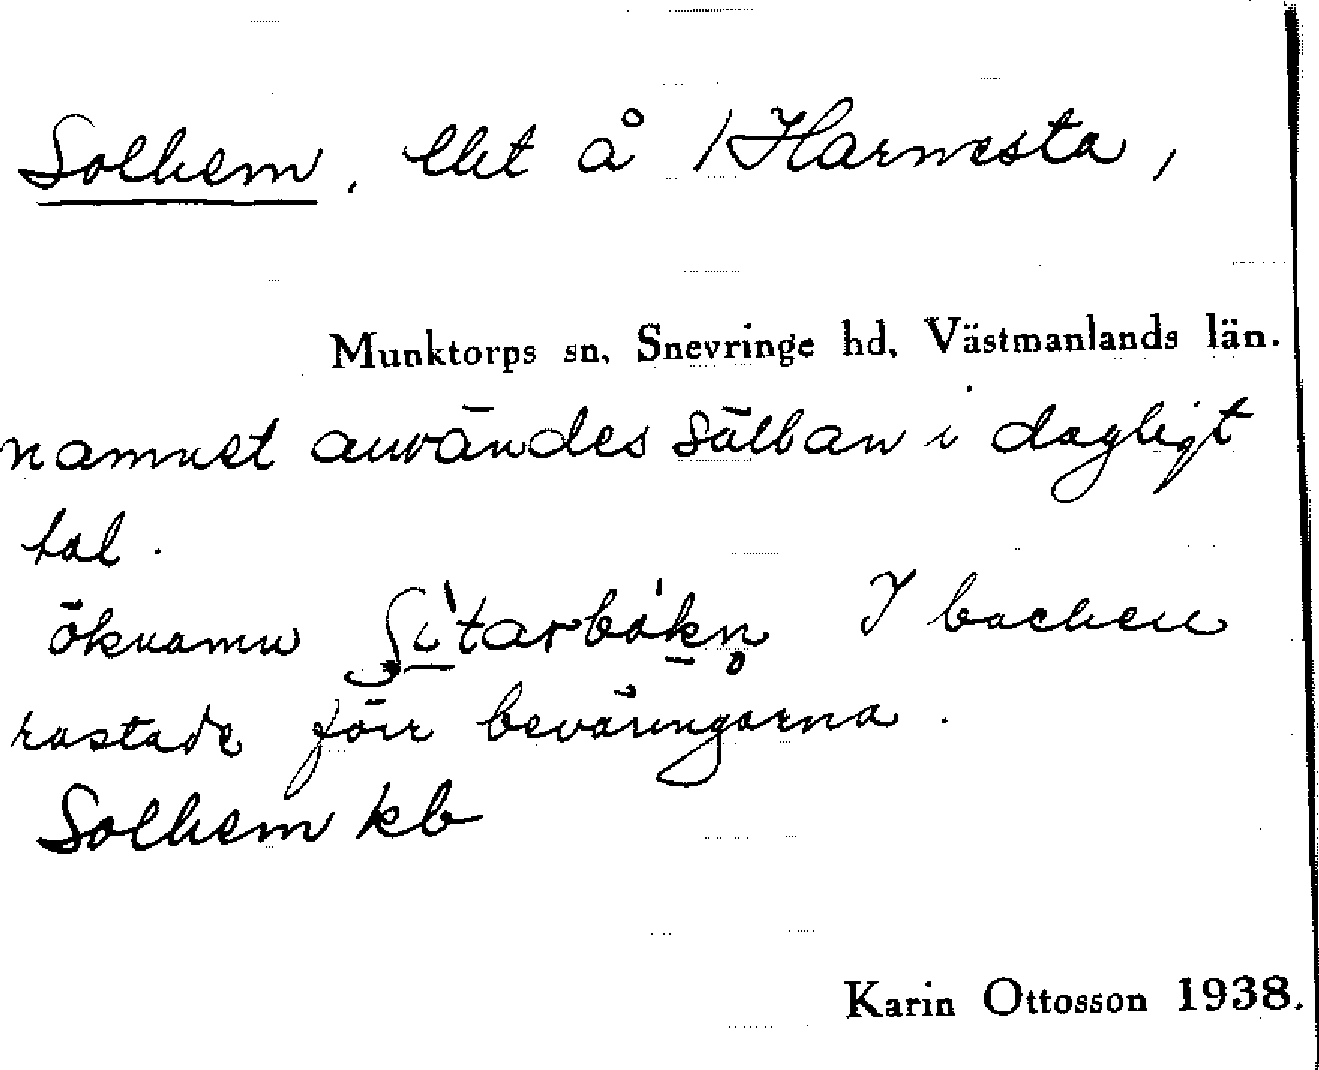 Solhem, lht å 1 Harnesta,
Munktorps sn, Snevringe hd, Västmanlands län.
namnet användes sällan i dagligt
tal.
öknamn I backen
rastade förr beväringarna.
Solhem kb
Karin Ottosson 1938.